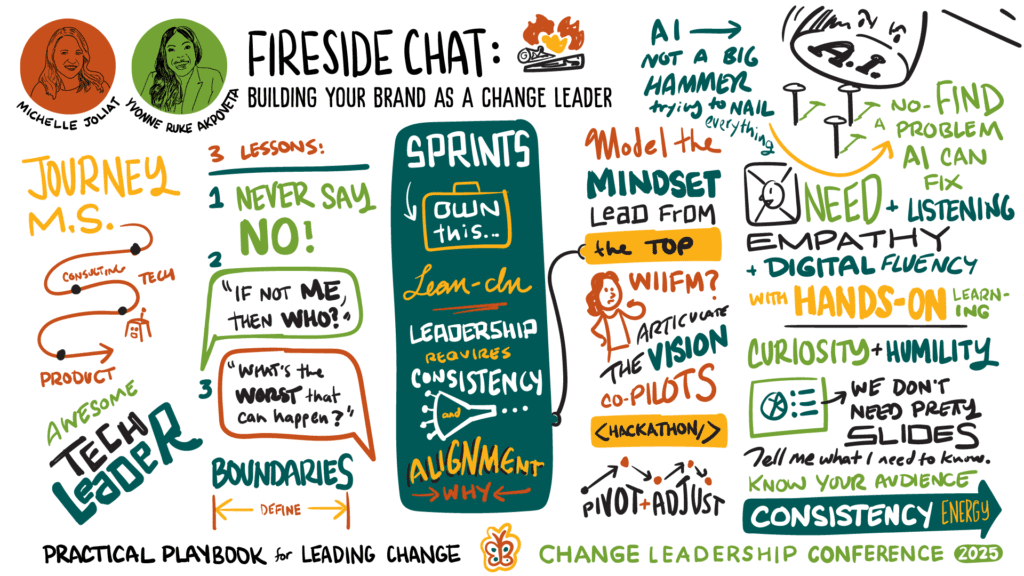 MICHELLE JOLIAT
YVONNE RUKE AKPOVETA
FIRESIDE CHAT:
BUILDING YOUR BRAND AS A CHANGE LEADER
JOURNEY
M.S.
CONSULTING
TECH
PRODUCT
AWESOME
TECH
LEADER
3 LESSONS:
1 NEVER SAY
NO!
2
"IF NOT ME,
THEN WHO?"
3
"WHAT'S the
WORST that
can happen?"
BOUNDARIES
DEFINE
SPRINTS
OWN
this...
Lean-In
LEADERSHIP
REQUIRES
CONSISTENCY
and
ALIGNMENT
WHY
Model the
MINDSET
LEAD FROM
the TOP
WIIFM?
ARTICULATE
THE VISION
CO-PILOTS
<HACKATHON/>
PIVOT + ADJUST
AI
NOT A BIG
HAMMER
trying to NAIL
everything
A.I.
NO-FIND
A PROBLEM
AI CAN
FIX
NEED + LISTENING
EMPATHY
+ DIGITAL FLUENCY
WITH HANDS-ON LEARN-
ING
CURIOSITY + HUMILITY
WE DON'T
NEED PRETY
SLIDES
Tell me what I need to know.
KNOW YOUR AUDIENCE
CONSISTENCY ENERGY
PRACTICAL PLAYBOOK for LEADING CHANGE
CHANGE LEADERSHIP CONFERENCE 2025